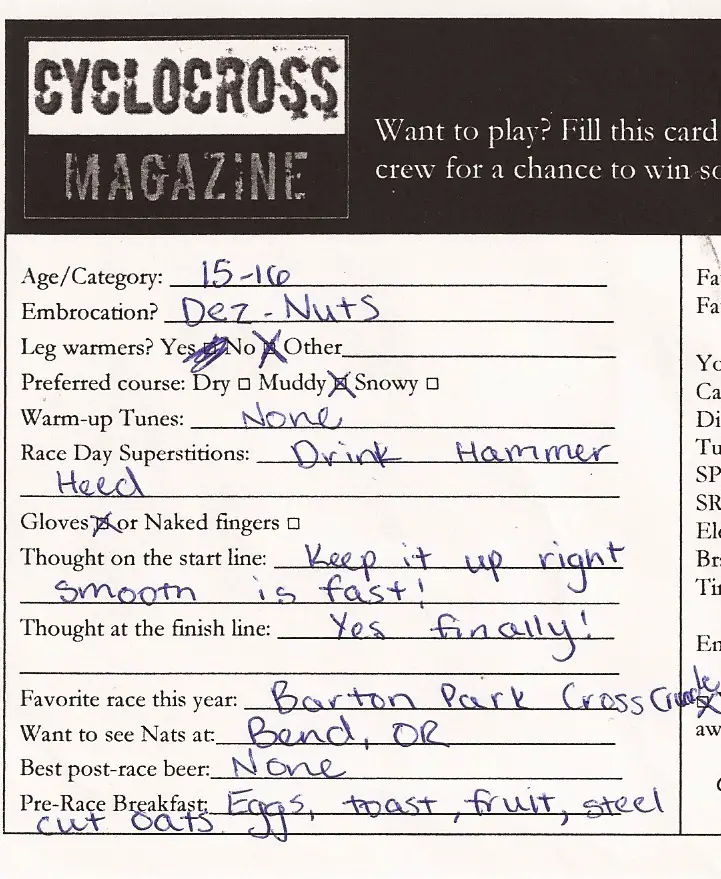 CYCLOCROSS
MAGAZINE
Want to play? Fill this card
crew for a chance to win so
Age/Category: 15-16
Embrocation? Dez-Nuts
Leg warmers? Yes No Other
Preferred course: Dry Muddy Snowy
Warm-up Tunes: None
Race Day Superstitions: Drink Hammer
Heed
Gloves or Naked fingers
Thought on the start line: Keep it up right
smooth is fast!
Thought at the finish line: Yes finally!
Favorite race this year: Barton Park Cross Crusade
Want to see Nats at: Bend, OR
Best post-race beer: None
Pre-Race Breakfast: Eggs, toast, fruit, steel
cut oats
Fa
Fa
Yo
Ca
Di
Tu
SP
SR
Ele
Bra
Tir
En
aw